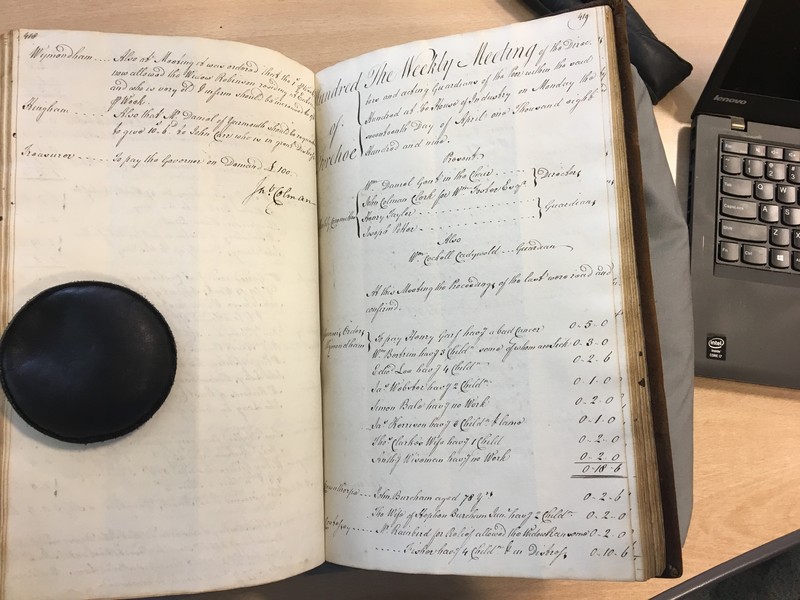 418
Wymondham .... Also at Meeting it was ordered that the
now allowed the Widow Robinson residing at
and who is very old & infirm should be increased to
pr Week.
Hingham .... Also that Mr. Daniel of Yarmouth should be requested
to give 10s. 6d. to John Carr who is in great Distress
Treasurer .... To pay the Governor on Demand £100.
Jas. Colman
419
Hundred The Weekly Meeting of the Direc-
of tors and acting Guardians of the Poor within the said
Forehoe Hundred at the House of Industry on Monday the
seventeenth Day of April one Thousand eight
Hundred and nine.
Present
Wm. Daniel Gent in the Chair
John Colman Clerk for Wm. Foster Esqr. Directors
Weekly Committee Henry Taylor
Joseph Potter Guardians
Also
Wm. Cockell Cadywold .... Guardian
At this Meeting the Proceedings of the last were read and
confirmed.
Orders To pay Henry Garf havg. a bad Cancer 0-5-0
Wymondham Wm. Bertram havg. 3 Childn. some of whom are sick 0-3-0
Edwd. Lee havg. 4 Childn. 0-2-6
Jas. Webster havg. 2 Childn. 0-1-0
Simon Bale havg. no Work 0-2-0
Jas. Kerrison havg. 6 Childn. & lame 0-1-0
Thos. Clarke's Wife havg. 1 Child 0-2-0
Wiseman havg. no Work 0-2-0
0-18-6
John Burcham aged 78 Yrs. 0-2-6
The Wife of Stephen Burcham Junr. havg. 2 Childn. 0-2-0
Mr. Rumbird for Relief allowed the Widow Ransome 0-2-0
.... Fisher havg. 4 Childn. & in Distress 0-10-6
lenovo
intel